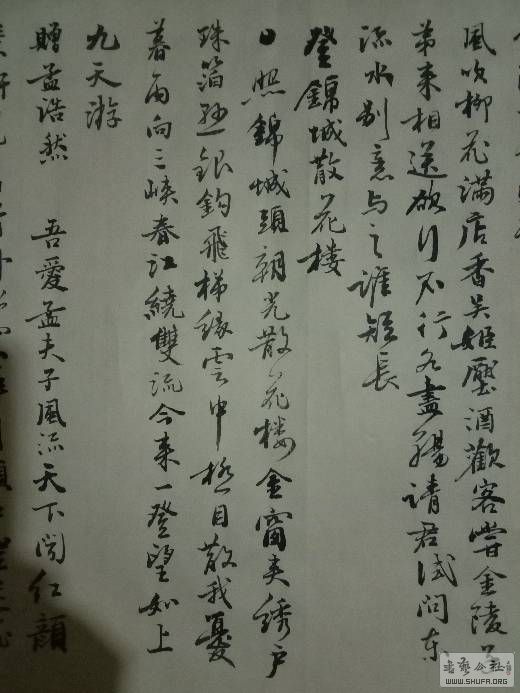 風吹柳花滿店香吳姬壓酒歡客嘗金陵子
弟來相送欲行不行各盡觴請君試問東
流水別意與之誰短長
登錦城散花樓
日照錦城頭朝光散花樓金窗夾綉戶
珠箔懸銀鉤飛梯緣雲中極目散我憂
暮雨向三峽春江繞雙流今來一登望如上
九天游
贈孟浩然 吾愛孟夫子風流天下聞紅顏
書藝公社
WWW.SHUFA.ORG